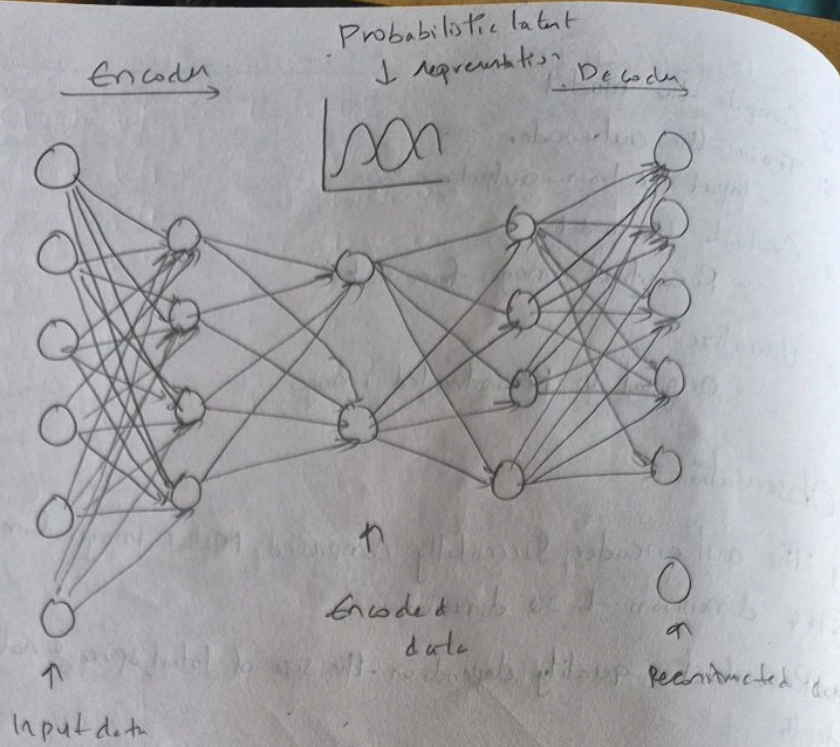 Probabilistic latent
↓ representation
Encoder
Decoder
Encoded
data
Reconstructed
Input data